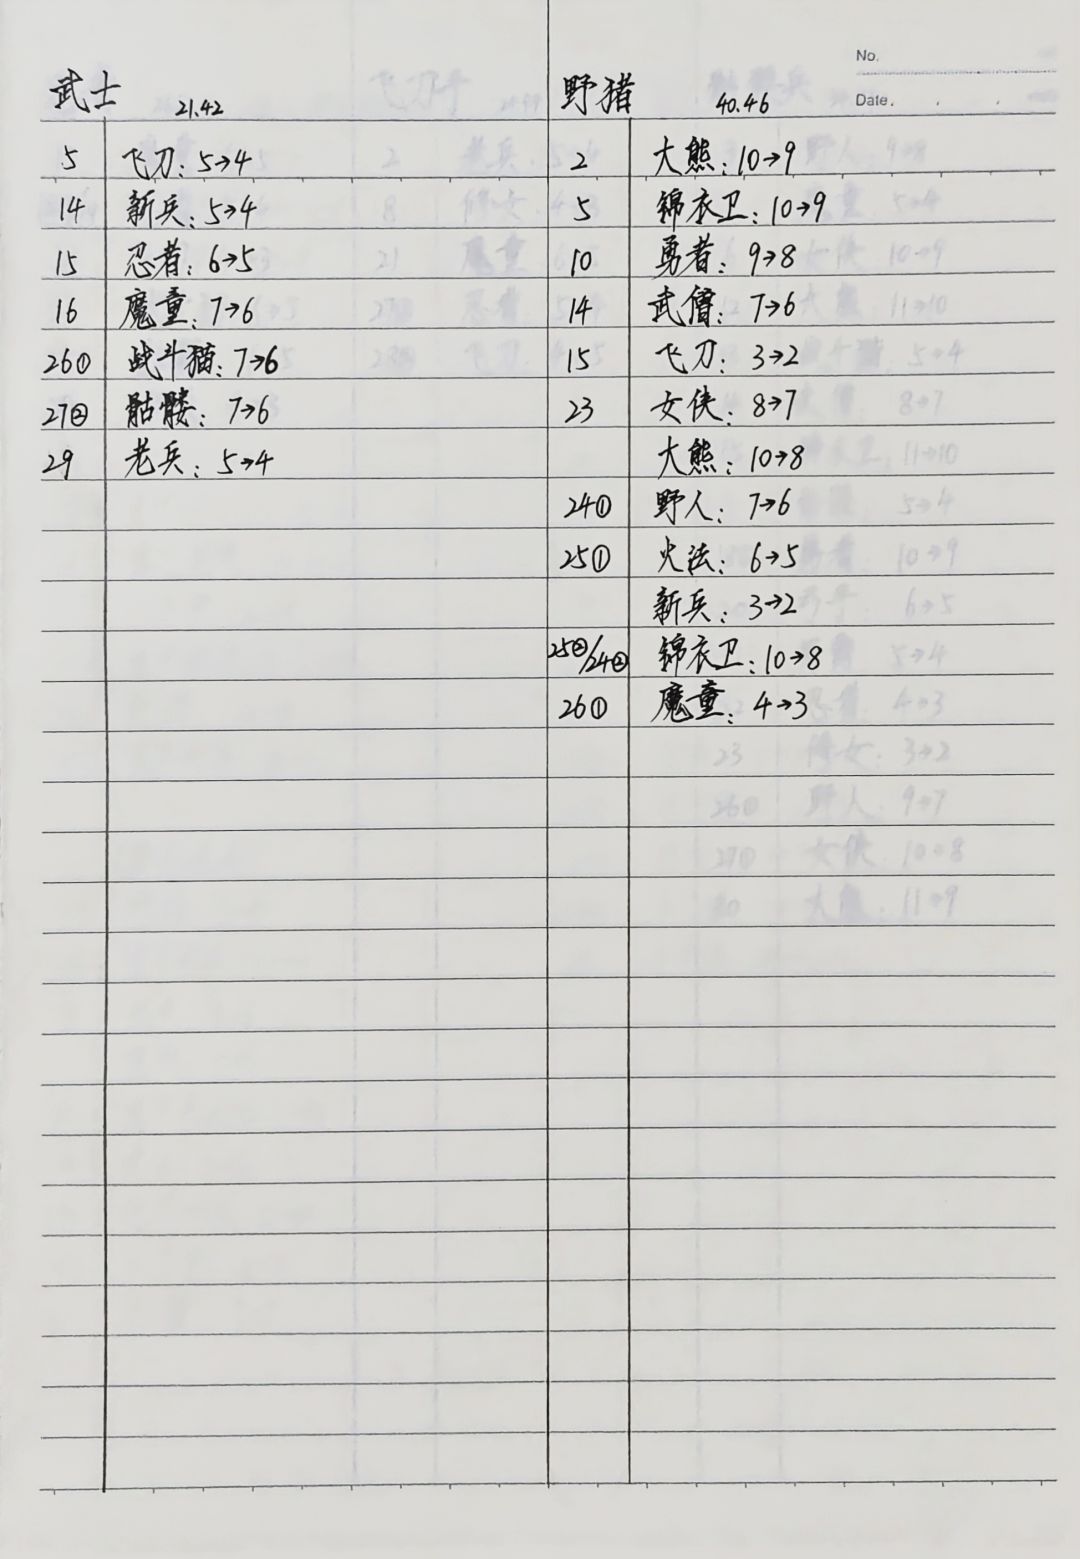 No.
Date.
武士 21.42
5 飞刀: 5→4
14 新兵: 5→4
15 忍者: 6→5
16 魔童: 7→6
26① 战斗猫: 7→6
27② 骷髅: 7→6
29 老兵: 5→4
野猪 40.46
2 大熊: 10→9
5 锦衣卫: 10→9
10 勇者: 9→8
14 武僧: 7→6
15 飞刀: 3→2
23 女侠: 8→7
大熊: 10→8
24① 野人: 7→6
25① 火法: 6→5
新兵: 3→2
25②/24② 锦衣卫: 10→8
26① 魔童: 4→3